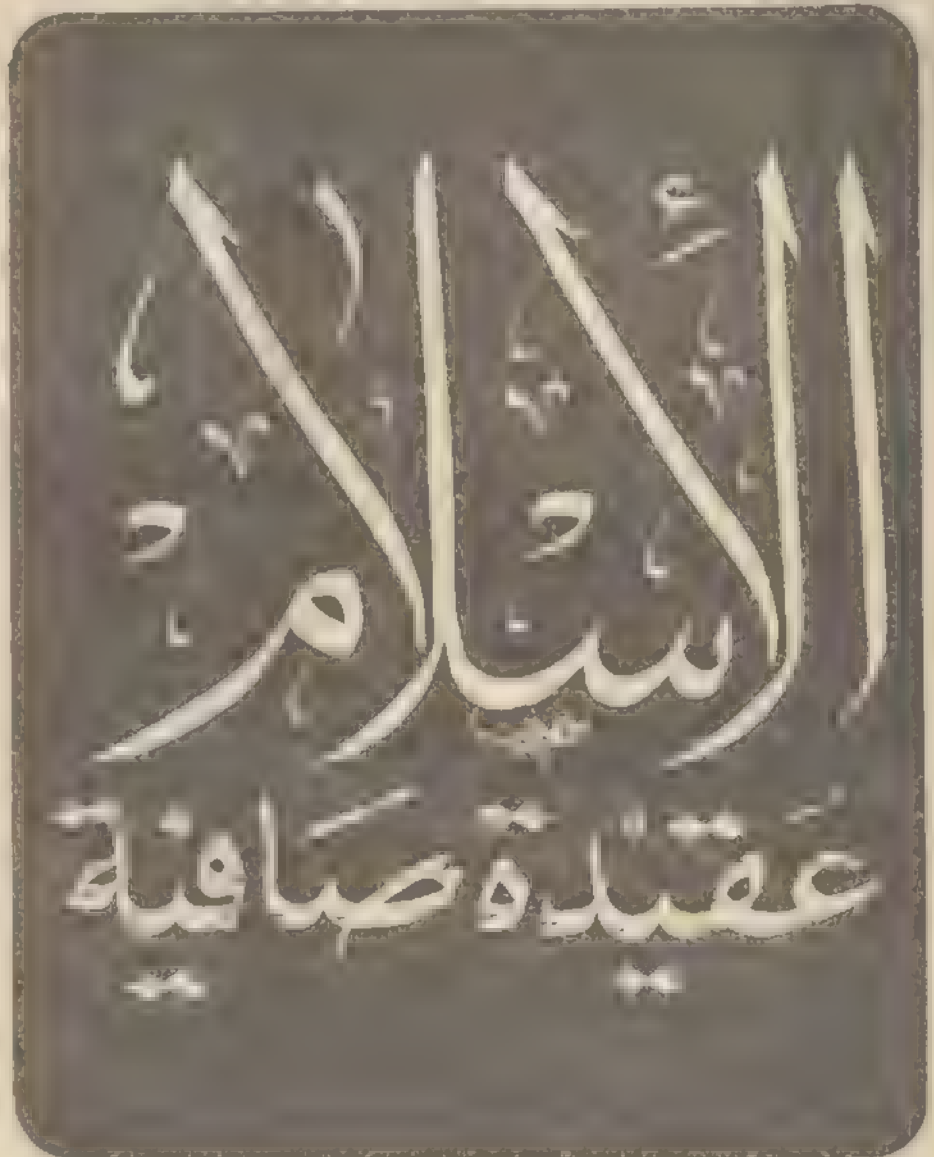 الإسلام
عَقيدة صَافية